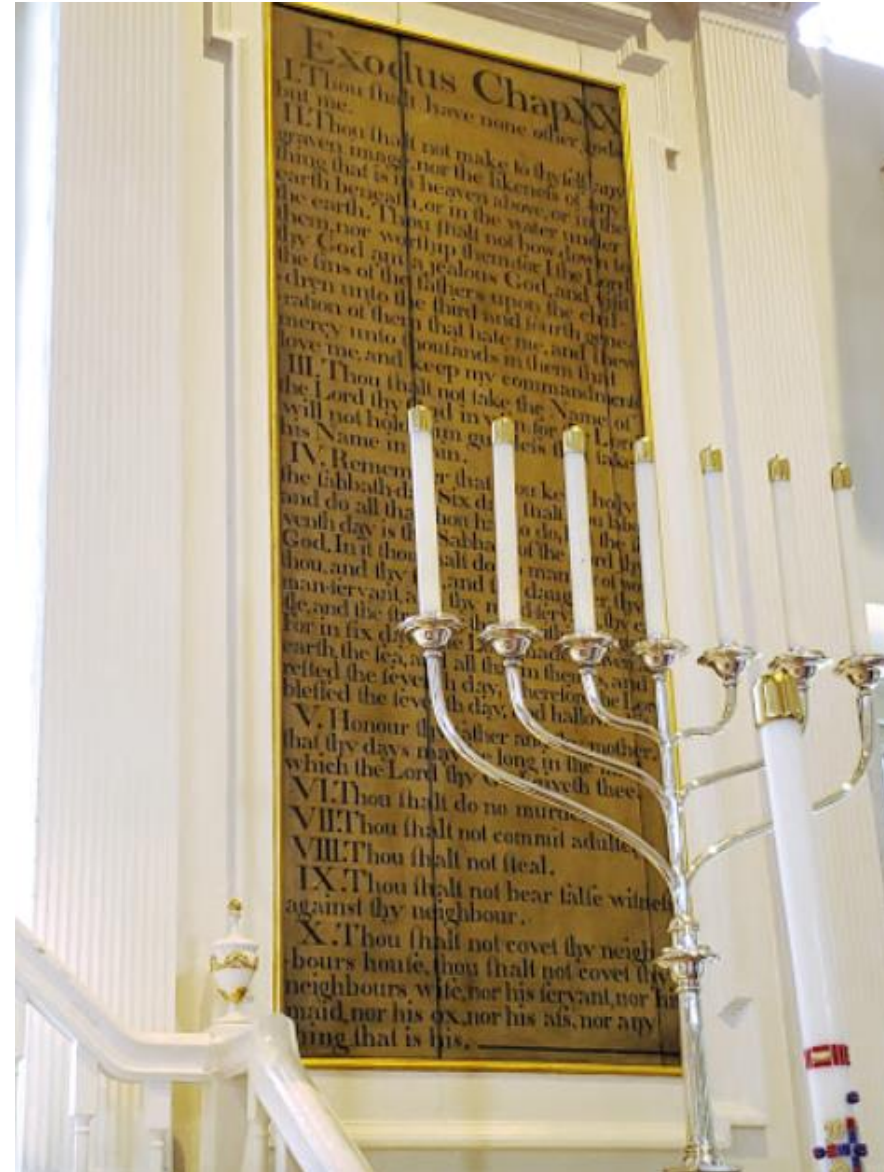 Exodus Chap.XX
I.Thou ſhalt have none other gods
but me.
II.Thou ſhalt not make to thyſelf any
graven image, nor the likeneſs of any
thing that is in heaven above, or in the
earth beneath, or in the water under
the earth. Thou ſhalt not bow down to
them, nor worſhip them: for I the Lord
thy God am a jealous God, and viſit
the ſins of the fathers upon the chil-
-dren unto the third and fourth gene-
-ration of them that hate me, and ſhew
mercy unto thouſands in them that
love me, and keep my commandments
III. Thou ſhalt not take the Name of
the Lord thy God in vain: for the Lord
will not hold him guiltleſs that take
his Name in vain.
IV. Remember that thou keep holy
the ſabbath-day. Six days ſhalt thou labour
and do all that thou haſt to do, but the ſe
venth day is the Sabbath of the Lord thy
God. In it thou ſhalt do no manner of work
thou, and thy and thy daughter, thy
man-ſervant, and thy maid-ſervant, thy
tle, and the
For in ſix days the Lord made heaven
earth, the ſea, and all that in them is, and
reſted the ſeventh day, wherefore the Lord
bleſſed the ſeventh day, and hallow
V. Honour thy father and thy mother,
that thy days may be long in the land
which the Lord thy God giveth thee.
VI.Thou ſhalt do no murder
VII.Thou ſhalt not commit adultery
VIII.Thou ſhalt not ſteal.
IX.Thou ſhalt not bear falſe witneſs
againſt thy neighbour.
X.Thou ſhalt not covet thy neigh-
-bours houſe, thou ſhalt not covet thy
neighbours wife, nor his ſervant, nor his
maid, nor his ox, nor his aſs, nor any
thing that is his.